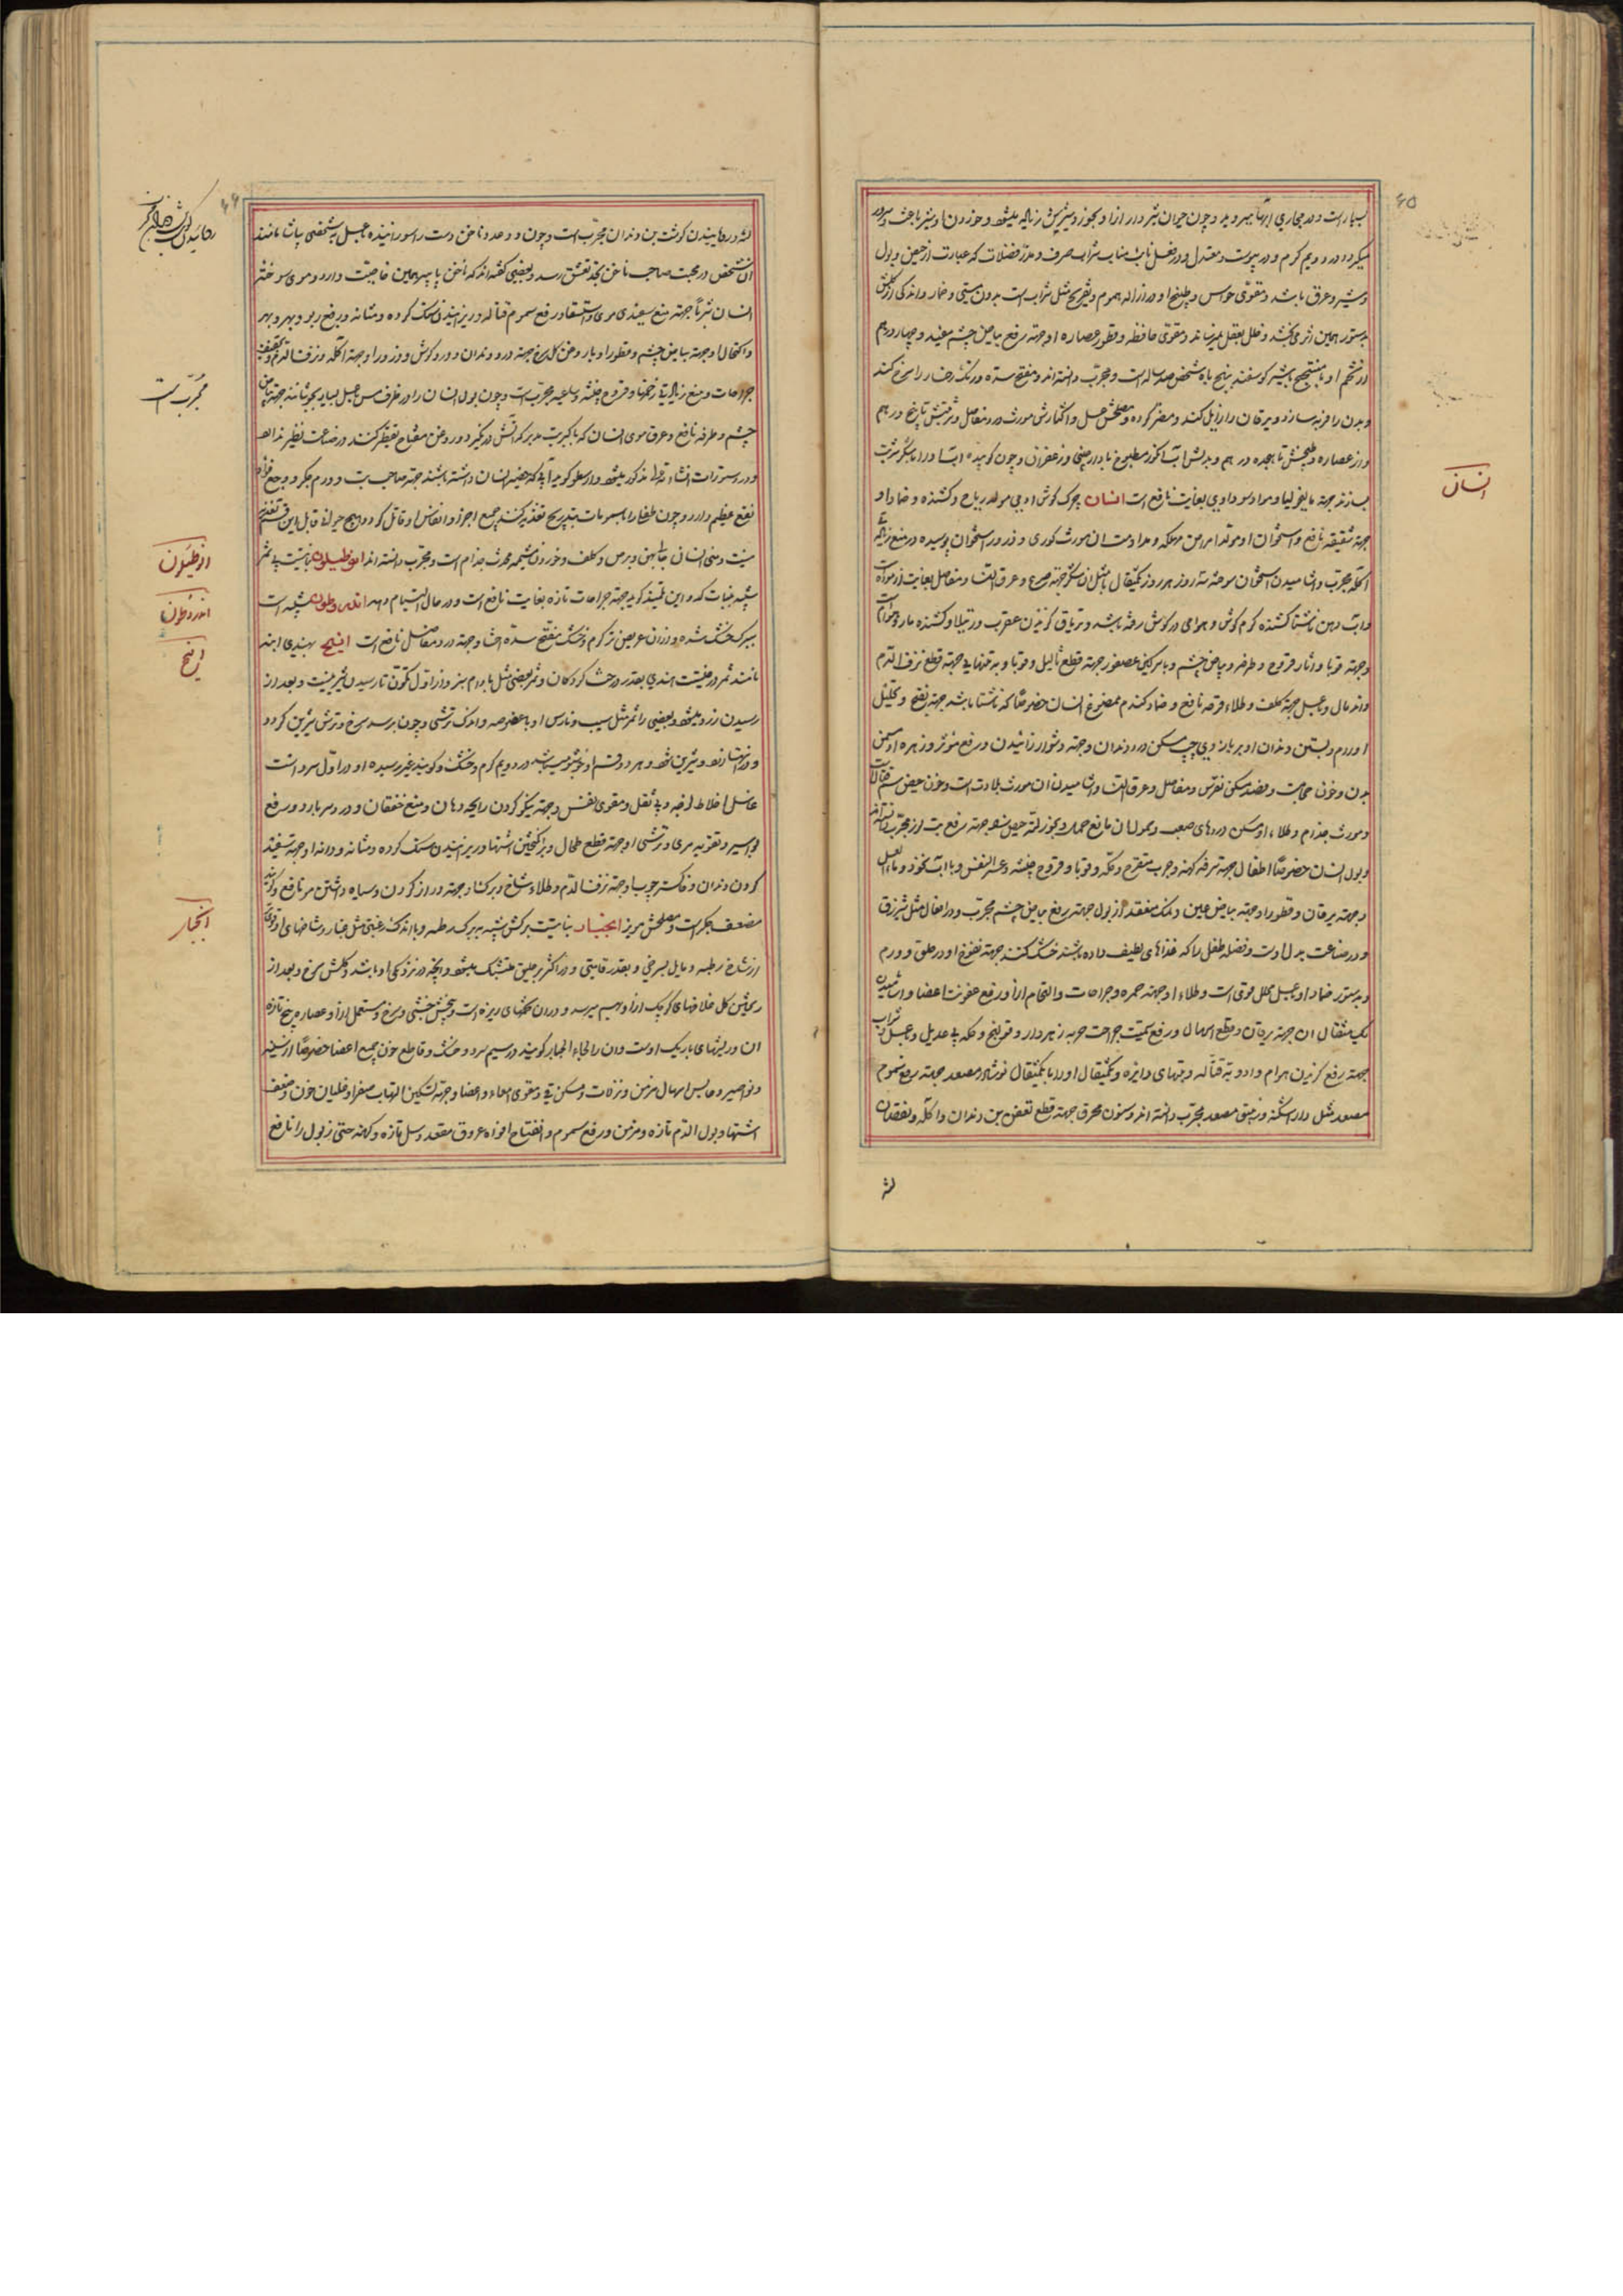 ۶۵
بسیار است و در مجاری آبها میروید و چون حیوان شیردار از او بخورد شیرش زیاده میشود و خوردن او نیز باعث
میگردد در دویم گرم و در یبوست معتدل و در فعل نایب مناب شراب صرف و مدر فضلات که عبارت از حیض و بول
و شیر و عرق باشد و مقوی حواس و طبیخ او در ازاله هموم و تفریح مثل شراب است بدون مستی و خمار و اندکی از
بدستور همین اثر می بخشد و خلل بعقل نمیرساند و مقوی حافظه و قطور عصاره او جهة رفع بیاض چشم مفید و چهار درهم
از تخم او با شیر گوسفند مهیج باه شخص صد ساله است و مجرب دانسته اند و مفتح سده و رنگ رخسار را سرخ کند
و بدن را فربه سازد و یرقان را زایل کند و مضر گرده و مصلحش عسل و اکثارش مورث درد مفاصل و شربتش تا پنج درهم
و از عصاره و طبیخش تا هجده درهم و بدلش
سازند جهة مالیخولیا و مواد سوداوی بغایت نافع است انسان چرک گوش
جهة شقیقه نافع و استخوان او مولد امراض مهلکه و مداومت آن مورث کوری و ذرور استخوان پوسیده در منع
آکله مجرب و آشامیدن استخوان سوخته سه روز هر روز یکمثقال با مثل آن شکر جهة صرع و عرق النسا و مفاصل بغایت
و آب دهن ناشتا کشنده کرم گوش و هوامی در گوش رفته باشد و تریاق گزیدن عقرب و رتیلا و کشنده مار
و جهة قوبا و آثار قروح و طرفه و بیاض چشم و با سرگین عصفور جهة قطع ثآلیل و قوبا و به تنهایی جهة قطع نزف الدم
و با عسل جهة کلف و طلاء قرحه نافع و ضماد گندم ممضوغ انسان خصوصا که ناشتا باشد جهة نضج و تحلیل
اورام و بستن دندان او بر بازوی چپ مسکن درد دندان و جهة دشوار زائیدن و رفع
بدن و خون حجامت و فصد مسکن نقرس و مفاصل و عرق النسا و آشامیدن آن مورث بلادت است و خون حیض سم قتال
و مورث جذام و طلاء او مسکن دردهای صعب و حمول آن مانع حمل و بخور لته حیض جهة رفع تب لرز مجرب
و بول انسان خصوصا اطفال جهة سرفه کهنه و جرب متقرح و حکه و قوبا و قروح خبیثه و عسر النفس و با آب نخود و ماء العسل
و جهة یرقان و قطور او جهة بیاض عین و نمک منعقد از بول جهة رفع بیاض چشم مجرب و در افعال مثل
و در صناعت بدل اوست و فضله طفلی را که غذاهای لطیف داده باشند خشک کنند جهة نفوخ او در حلق و ورم
و بدستور ضماد او با عسل محلل قوی است و طلاء او جهة حمره و جراحات و التحام آن و رفع عفونت اعضا و آشامیدن
یک مثقال آن جهة یرقان و قطع اسهال و رفع سمیت جراحت حربه زهردار و قولنج و حکه بی عدیل و با عسل و شراب
جهة رفع گزیدن هوام و ادویه قتاله و تبهای دایره و یکمثقال او را با یکمثقال نوشادر مصعد جهة رفع سموم
مصعد مثل داراشکنه و زیبق مصعد مجرب دانسته اند و سنون محرق جهة قطع تعفن بن دندان و آکله و نقصان
لثه
انسان
۶۶
لثه و رویانیدن گوشت بن دندان مجرب است و چون دو عدد ناخن دست را سوزانیده با عسل به شخصی بیاشامانند
آن شخص در محبت صاحب ناخن بحد تعشق رسد و بعضی گفته اند که ناخن پا نیز همین خاصیت دارد و موی سوخته
انسان شربا جهة منع سفیدی موی و استسقا و رفع سموم قتاله و ریزانیدن سنگ گرده و مثانه و رفع ربو و بهر
و اکتحال او جهة بیاض چشم و قطور او با روغن گل سرخ جهة درد دندان و درد گوش و ذرور او جهة آکله و نزف الدم
جراحات و منع زیادتی زخمها و قروح خبیثه و ساعیه مجرب است و چون بول انسان را در ظرف مس با عسل بسیار بجوشانند جهة بیاض
چشم و طرفه نافع و عرق موی انسان که با کبریت مدبر که آتش در نگیرد و روغن مفتاح تقطیر کنند در صناعت نظیر ندارد
و در دستورات انشاء الله مذکور میشود و ارسطو گوید
نفع عظیم دارد و چون طفل را بسمومات بتدریج تغذیه کنند جمیع اجزا و انفاس او قاتل گردد و هیچ حیوانی قابل این قسم تغذیه
نیست و منی انسان جهة بهق و برص و کلف و خوردن مشیمه محدث جذام است و مجرب دانسته اند انوطیلون نباتیست بی ثمر
شبیه بنبات کدو و ابن تلمیذ گوید جهة جراحات تازه بغایت نافع است و در حال التیام دهد اندروطون شبیه است
ببرگ خشک شده و از آن عریض تر گرم و خشک مفتح سده احشا و جهة درد مفاصل نافع است انبج بهندی انبه
نامند ثمر درختیست هندی بقدر درخت گردکان و ثمر بعضی مثل بادام سبز و از اول تکون تا رسیدن تغییر نیست و بعد از
رسیدن زرد میشود و بعضی را ثمر مثل سیب و نارس او با عفوصه و اندک ترشی و چون برسد سرخ و ترش شیرین گردد
و هر دو قسم او خوشبو میباشد در دویم گرم و خشک و گویند غیر رسیده او در اول سرد است
غاسل اخلاط لزجه و بی ثقل و مقوی نفس و جهة نیکو کردن رایحه دهان و منع خفقان و درد سر بارد و رفع
بواسیر و تقویه مری و ترشی او جهة قطع طحال و برانگیختن اشتها و ریزانیدن سنگ گرده و مثانه و دانه او جهة سفید
کردن دندان و خاکستر چوب او جهة نزف الدم و طلاء شاخ و برگش او جهة دراز کردن و سیاه داشتن مو نافع و گویند
مضعف جگر است و مصلحش مویز انجبار نباتیست برگش شبیه ببرگ رطبه و با اندک زغبی مثل غبار و شاخهای او
از شاخ رطبه و مایل بسرخی و بقدر قامتی و در اکثر بر علیق متشبک میشود و آنچه در نزدیکی او باشد و گلش سرخ و بعد از
ریختن گل غلافهای کوچک از او بهم میرسد و در آن تخمهای ریزه است و بیخش خشبی و سرخ و مستعمل از او عصاره بیخ تازه
آن و ریشهای باریک اوست و آن را لحاء انجبار گویند در سیم سرد و خشک و قاطع خون جمیع اعضا خصوصا از سینه
و بواسیر و حابس اسهال مزمن و نزلات و مسکن قی و مقوی امعاء و اعضا و جهة تسکین التهاب صفرا و غلیان خون و ضعف
اشتها و بول الدم تازه و مزمن و رفع سموم و انفتاح افواه عروق مقعد و سل تازه و کهنه حتی ذبول را نافع
مجرب است
انوطیلون
اندروطون
انبج
انجبار